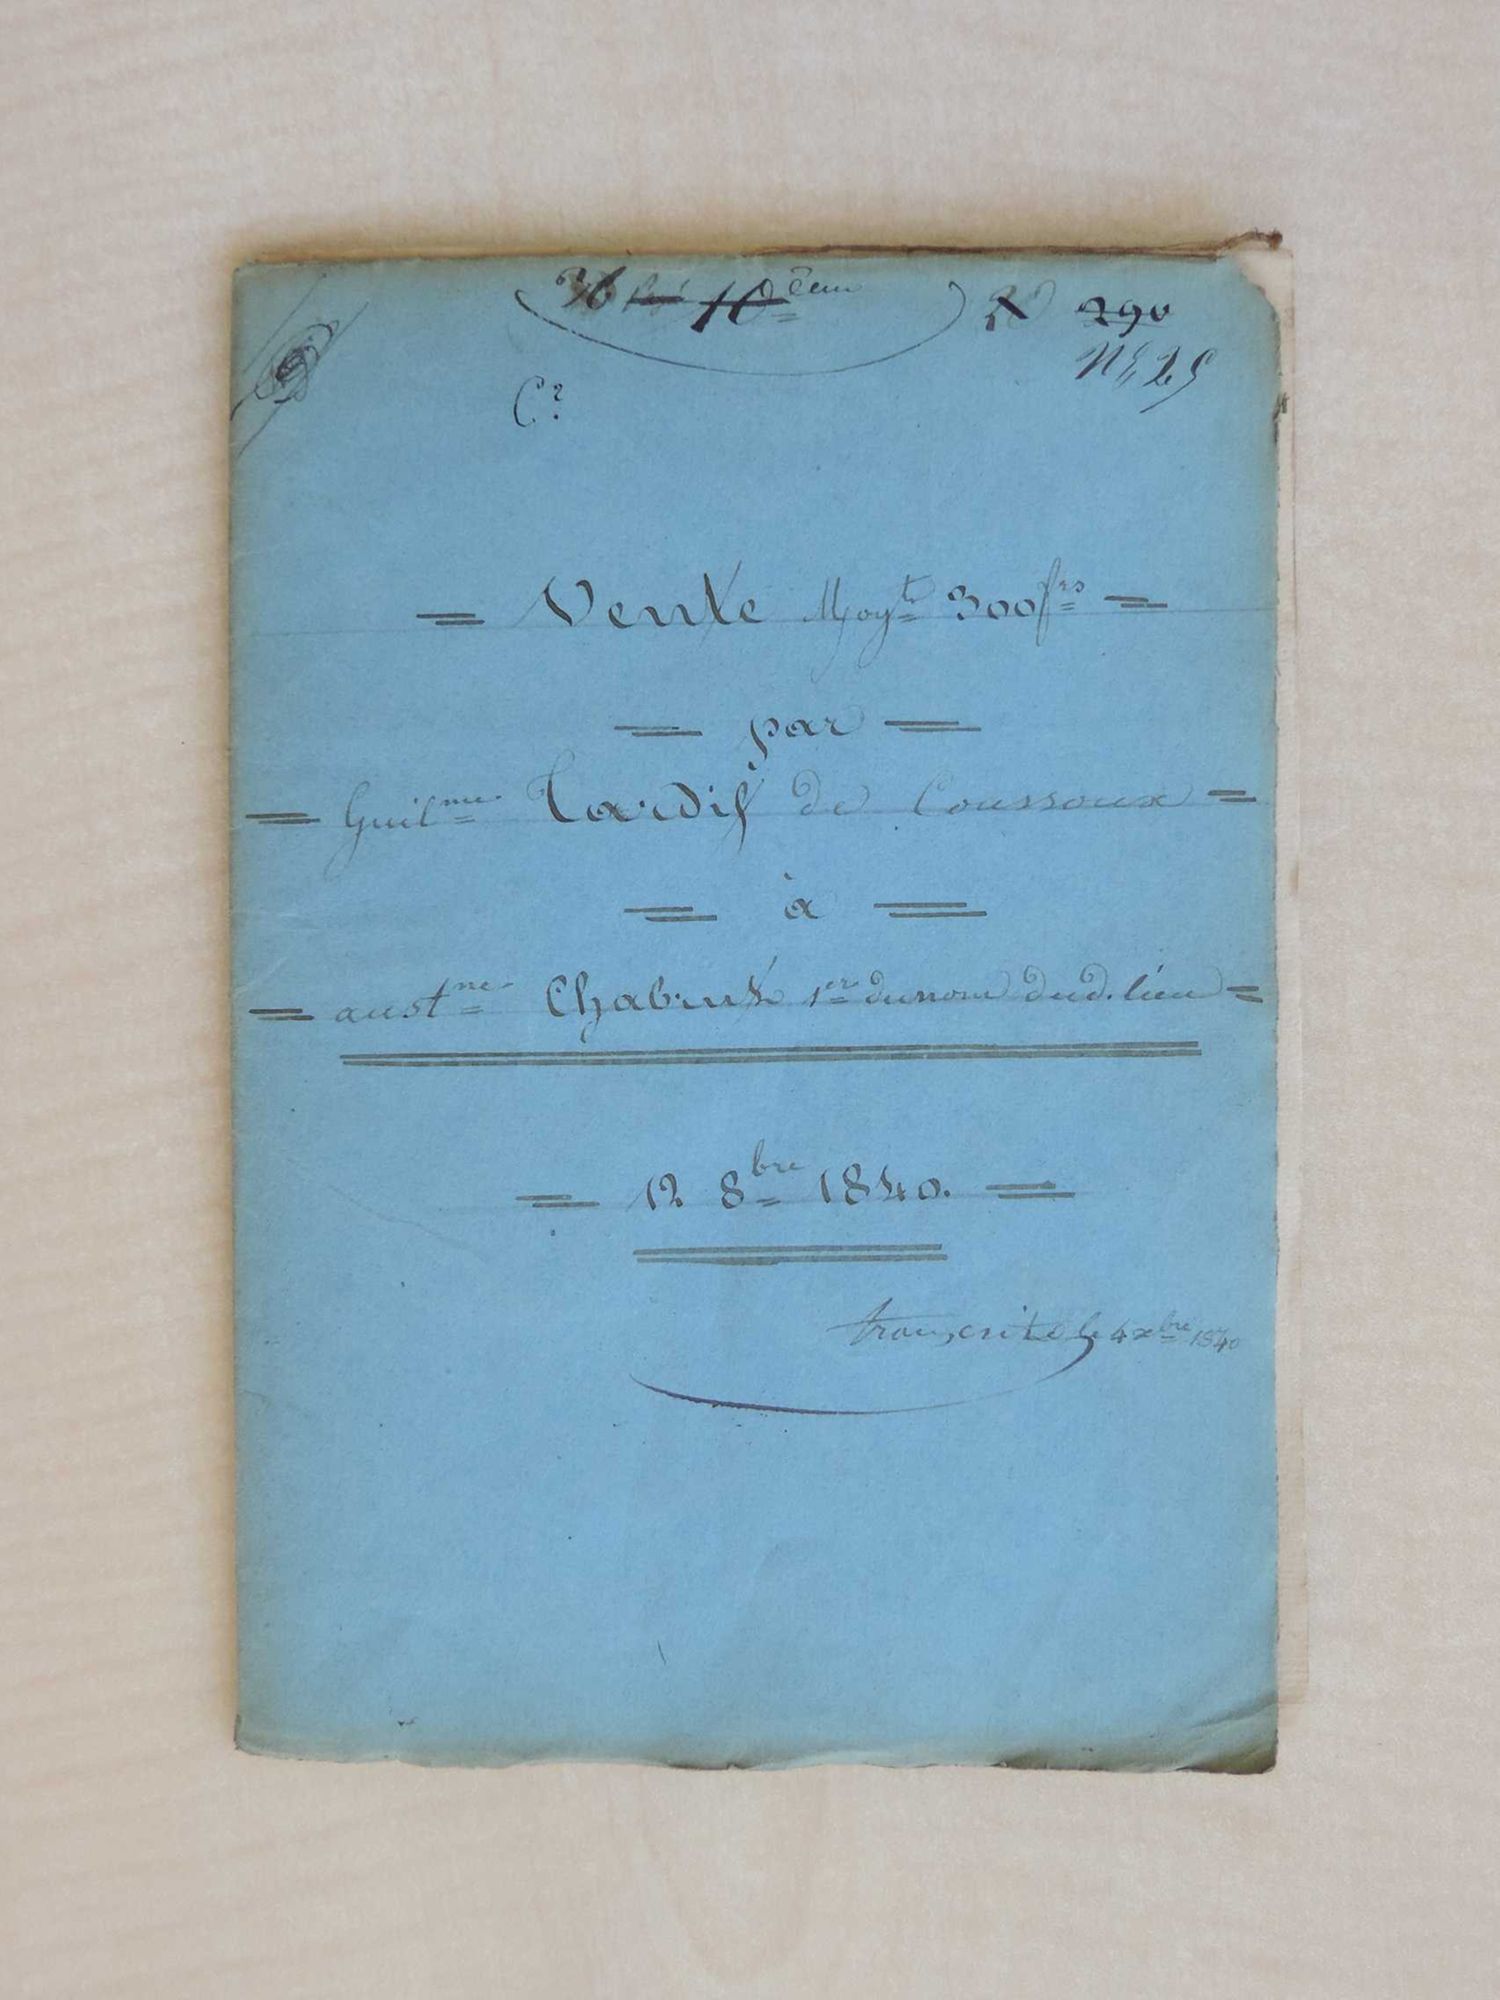 36 10ème 290
N° 25
Vente Moyt 300 frs
par
Guilme Tardif de Coussoux
à
austne Chabrut 1er du nom dud. lieu
12 8bre 1840.
transcrit le 4 xbre 1840